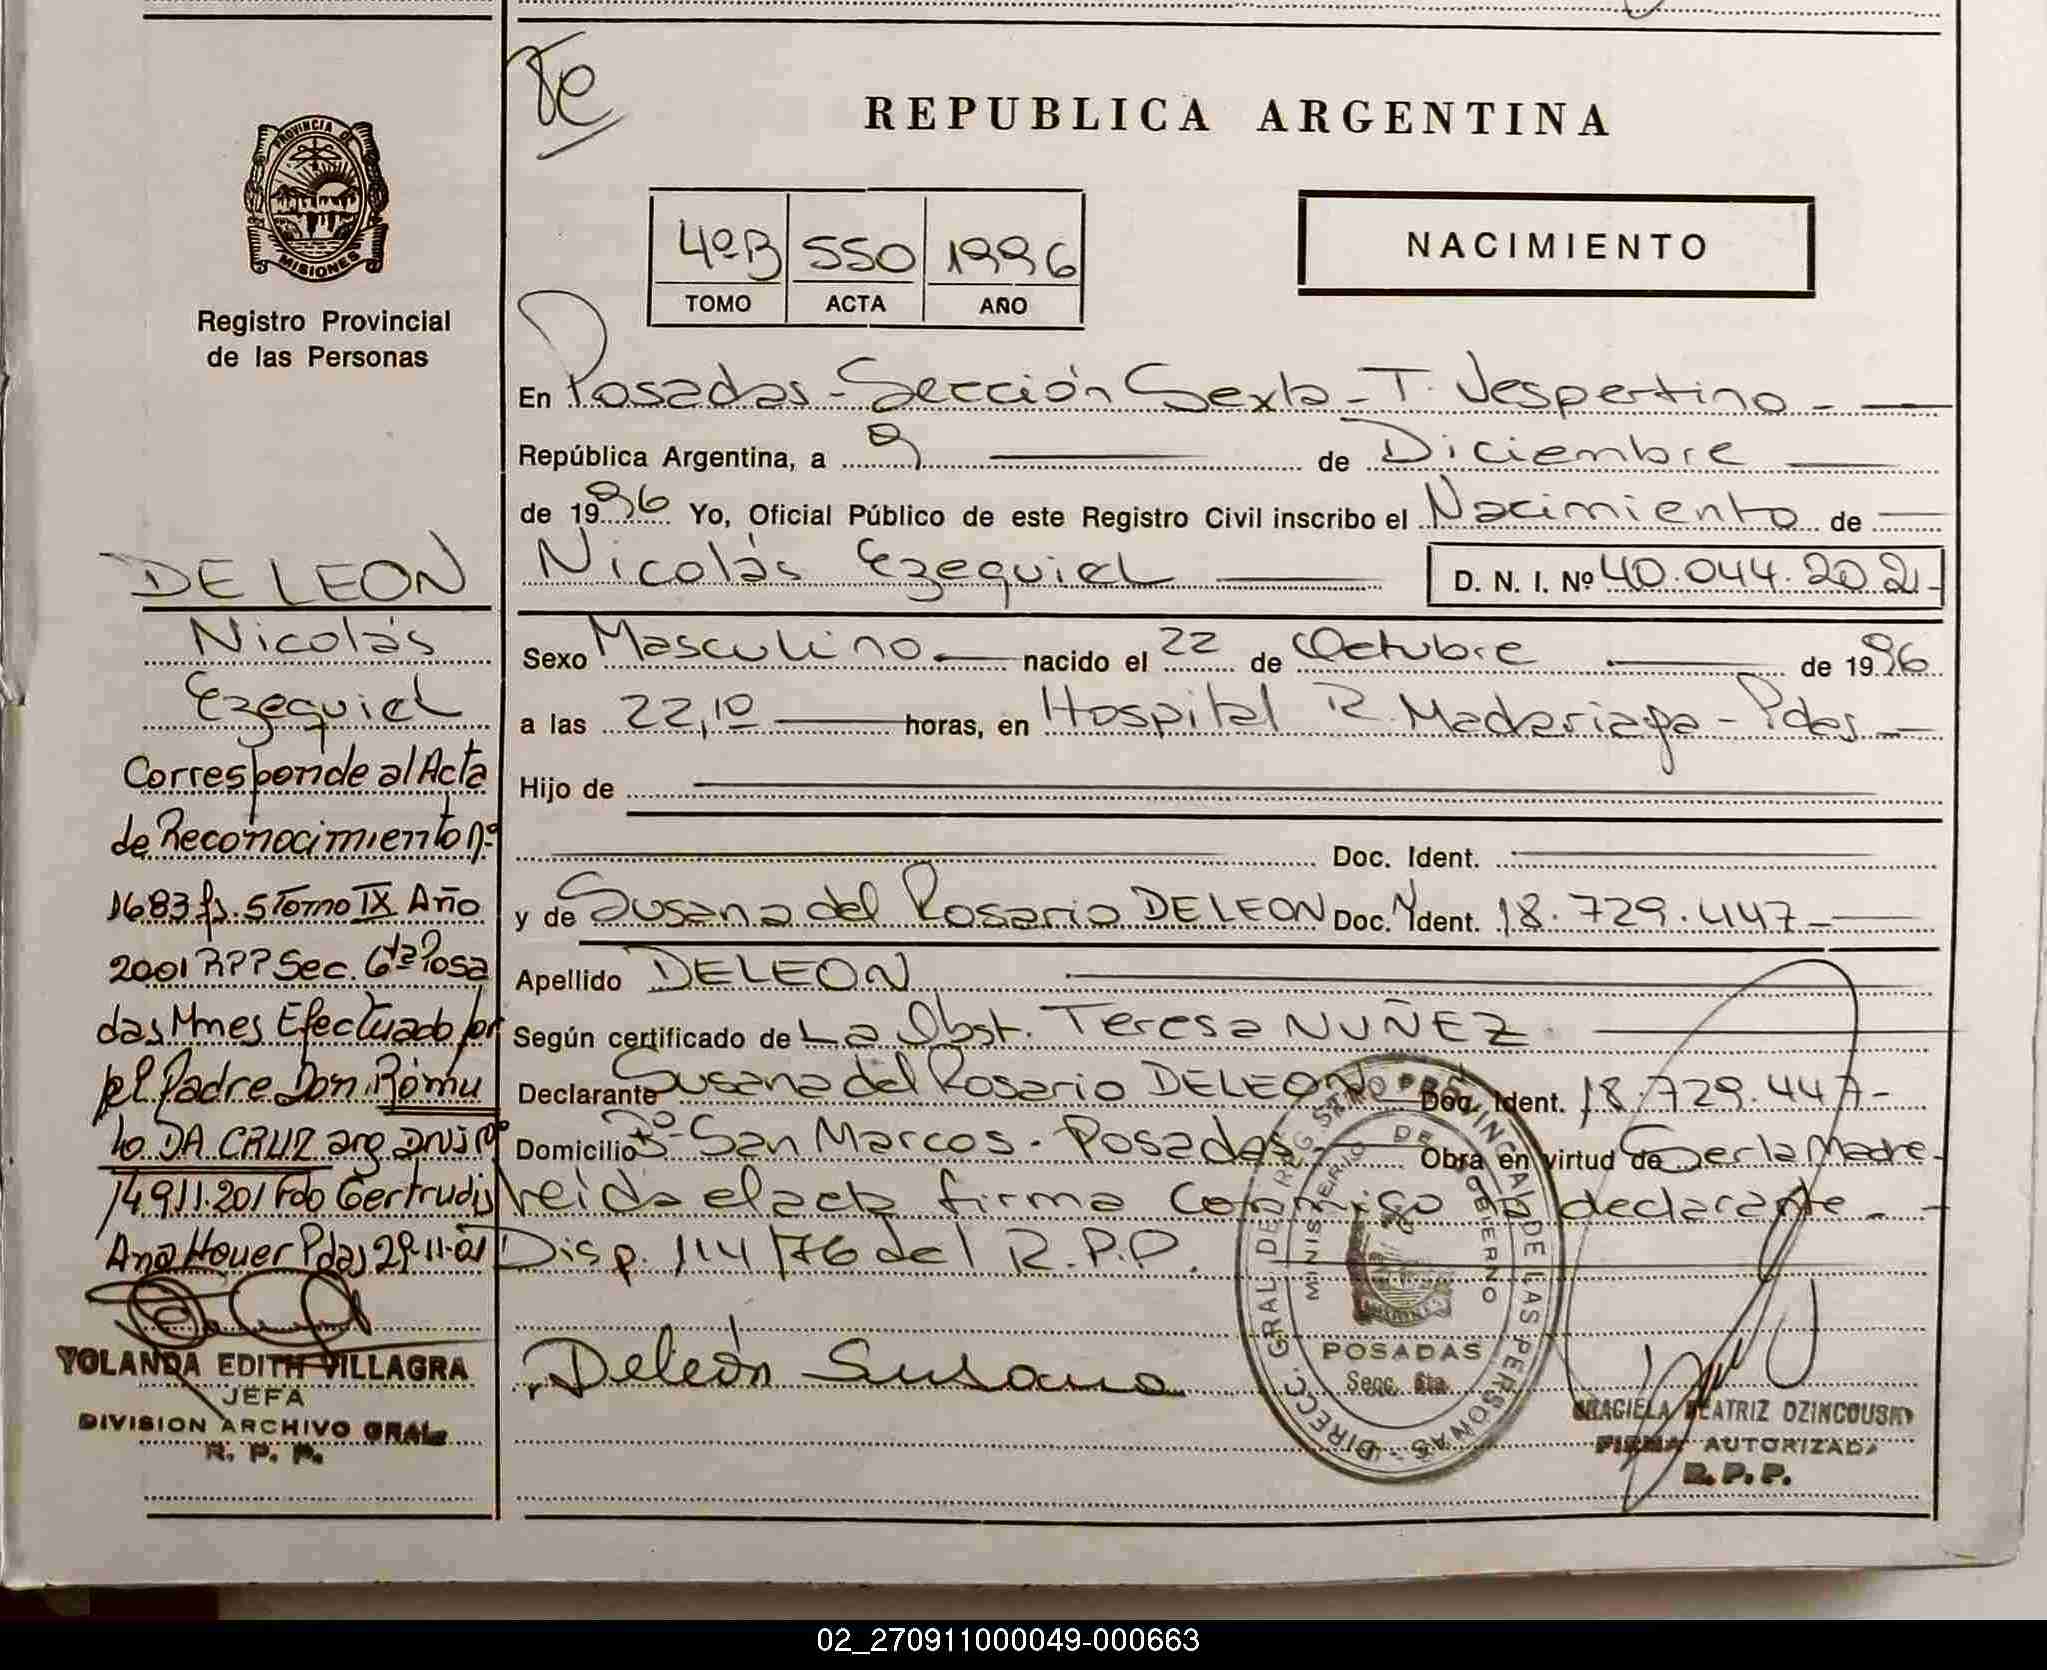 REPUBLICA ARGENTINA
PROVINCIA DE
MISIONES
Registro Provincial
de las Personas
4ºB 550 1996
TOMO ACTA AÑO
NACIMIENTO
En Posadas - Sección Sexta - T. Vespertino -
República Argentina, a 9 de Diciembre
de 1996 Yo, Oficial Público de este Registro Civil inscribo el Nacimiento de
Nicolás Ezequiel D. N. I. Nº 40.044.202-
Sexo Masculino nacido el 22 de Octubre de 1996
a las 22,10 horas, en Hospital R. Madariaga - Pdas -
Hijo de
Doc. Ident.
y de Susana del Rosario DE LEON Doc. Ident. 18.729.447-
Apellido DE LEON
Según certificado de La Obst. Teresa NUÑEZ.
Declarante Susana del Rosario DE LEON Doc. Ident. 18.729.447-
Domicilio Bº San Marcos - Posadas Obra en virtud de Ser la Madre-
leída el acta firma conmigo la declarante -
Disp. 114/76 del R.P.P.
Deleón Susana
DIRECC. GRAL DE REGISTRO PROVINCIAL DE LAS PERSONAS
MINISTERIO DE GOBIERNO
POSADAS
Secc. 6ta.
GRACIELA BEATRIZ DZINCOUSKY
FIRMA AUTORIZADA
R. P. P.
DE LEON
Nicolás
Ezequiel
Corresponde al Acta
de Reconocimiento nº
1683 fs. 5 Tomo IX Año
2001 RPP Sec. 6ta Posa
das Mnes Efectuado por
el Padre Don Rómu
lo DA CRUZ arg DNI Nº
14.911.201 Fdo Gertrudis
Ana Houer Pdas 29-11-01
YOLANDA EDITH VILLAGRA
JEFA
DIVISION ARCHIVO GRAL.
R. P. P.
02_270911000049-000663